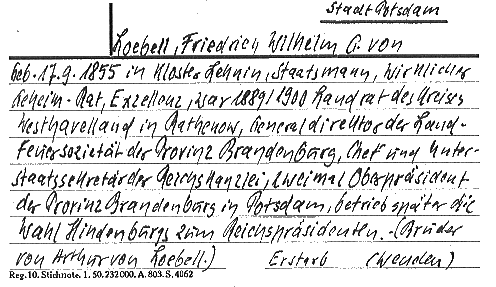 Stadt Potsdam
Loebell, Friedrich Wilhelm G. von
geb. 17.9.1855 in Kloster Lehnin, Staatsmann, Wirklicher
Geheim. Rat, Exzellenz, war 1889/1900 Landrat des Kreises
Westhavelland in Rathenow, Generaldirektor der Land-
Feuersozietät der Provinz Brandenburg, Chef und Unter-
staatssekretär der Reichskanzlei, zweimal Oberpräsident
der Provinz Brandenburg in Potsdam, betrieb später die
Wahl Hindenburgs zum Reichspräsidenten. - (Bruder
von Arthur von Loebell.) Ersterb (Wenden)
Reg. 10. Stichnote. 1. 50. 232000. A. 803. S. 4062